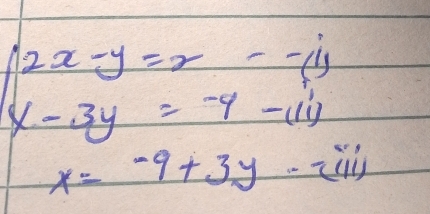 2x - y = 2 - - (i)
x - 3y = -9 - (ii)
x = -9 + 3y - - (iii)